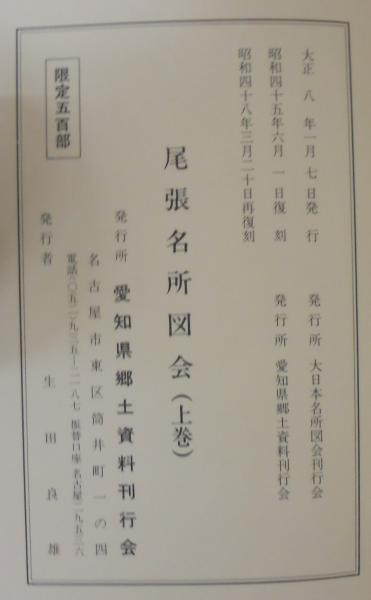 大正八年一月七日発行 発行所 大日本名所図会刊行会
昭和四十五年六月一日復刻 発行所 愛知県郷土資料刊行会
昭和四十八年三月二十日再復刻
尾張名所図会(上巻)
発行所 愛知県郷土資料刊行会
名古屋市東区筒井町一の四
電話(〇五二)九三五―二一八七 振替口座 名古屋二九五三六
発行者 生田良雄
限定五百部